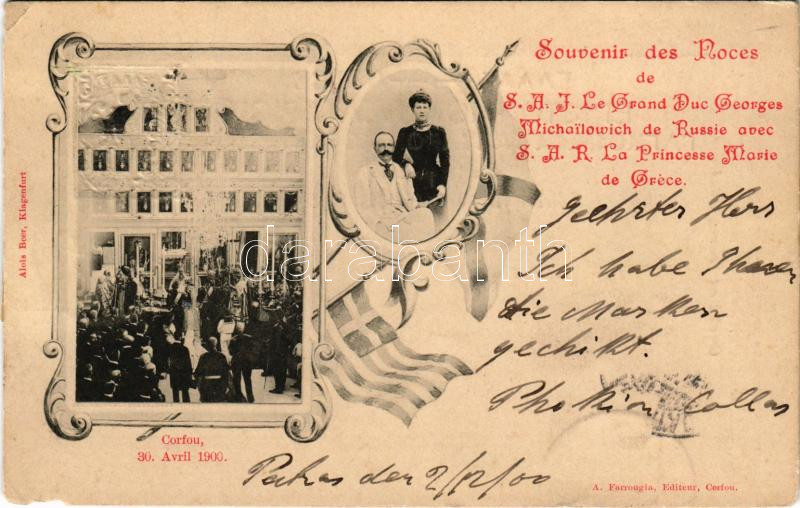 Souvenir des Noces
de
S. A. J. Le Grand Duc Georges
Michaïlowich de Russie avec
S. A. R. La Princesse Marie
de Grèce.
Geehrter Herr
Ich habe Ihnen
die Marken
geschikt.
Photion Collas
Alois Beer, Klagenfurt
Corfou,
30. Avril 1900.
Patras den 2/12/00
A. Farrougia, Editeur, Corfou.
darabanth